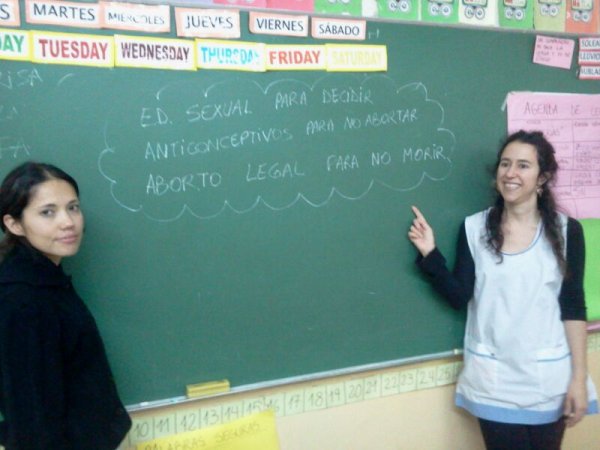 MARTES
MIERCOLES
JUEVES
VIERNES
SÁBADO
TUESDAY
WEDNESDAY
THURSDAY
FRIDAY
SATURDAY
ED. SEXUAL PARA DECIDIR
ANTICONCEPTIVOS PARA NO ABORTAR
ABORTO LEGAL PARA NO MORIR
AGENDA DE
10 11 12 13 14 15 16 17 18 19 20 21 22 23 24 25
PALABRAS SEGURAS